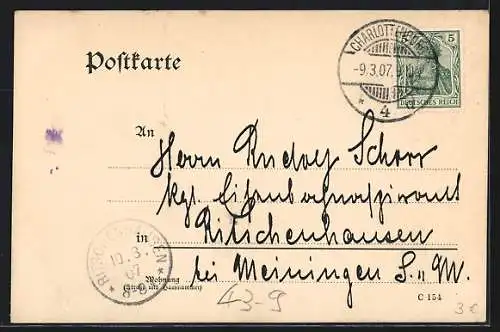 Postkarte
CHARLOTTENBURG
-9.3.07. 9-10V.
* 4 d
5
DEUTSCHES REICH
An
Herrn Rudolf Schorr
kgl. Eisenbahnaspirant
in Ritschenhausen
bei Meiningen S.=M.
RITSCHENHAUSEN
10.3.
07
8-9
Wohnung
(Straße und Hausnummer)
43-9
C 154
3€